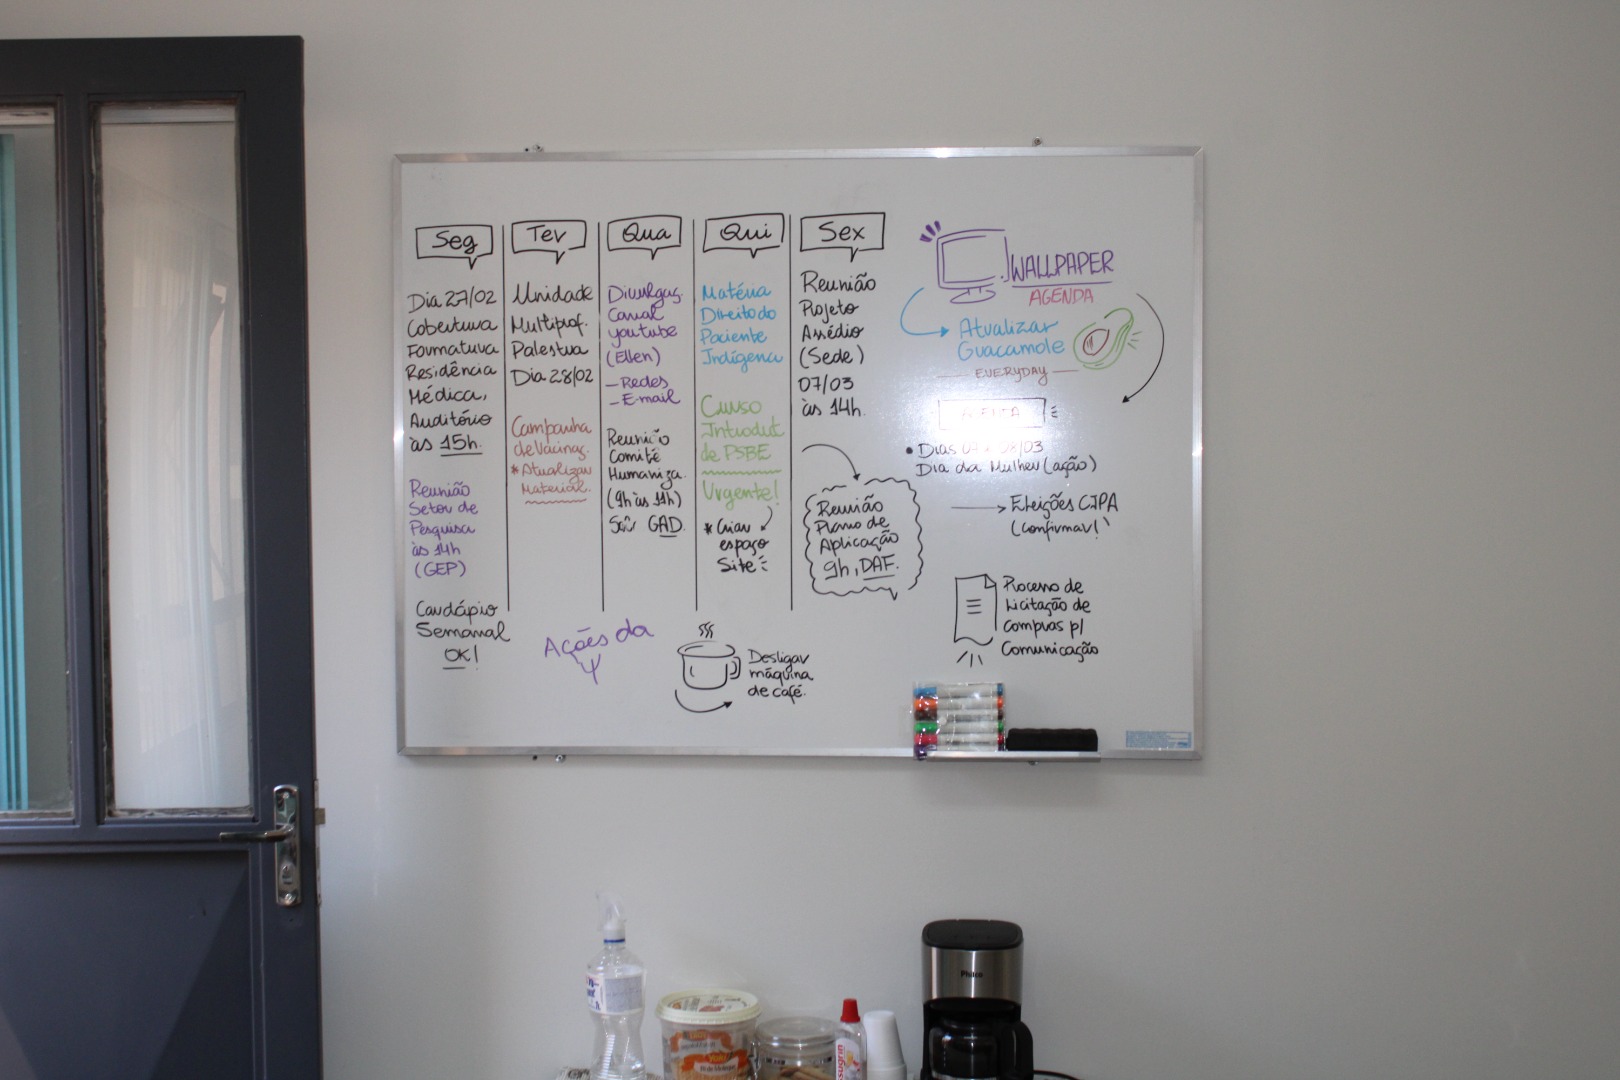 Seg
Dia 27/02
Cobertura
Formatura
Residência
Médica,
Auditório
às 15h.
Reunião
Setor de
Pesquisa
às 14h
(GEP)
Cardápio
Semanal
OK!
Ter
Unidade
Multiprof.
Palestra
Dia 28/02
Campanha
de Vacinaç.
*Atualizar
Material.
Qua
Divulgaç.
Canal
youtube
(Ellen)
- Redes
- E-mail
Reunião
Comitê
Humaniza.
(9h às 11h)
GAD.
Qui
Matéria
Direito do
Paciente
Indígena
Curso
Introdut
de PSBE
Urgente!
* Criar
espaço
Site
Sex
Reunião
Projeto
Assédio
(Sede)
07/03
às 14h.
Reunião
Plano de
Aplicação
9h, DAF.
Ações da
Desligar
máquina
de café.
WALLPAPER
AGENDA
Atualizar
Guacamole
EVERYDAY
AGENDA
• Dias 08/03
Dia da Mulher (ação)
Eleições CIPA
(confirmar!)
Processo de
Licitação de
Compras p/
Comunicação
Philco